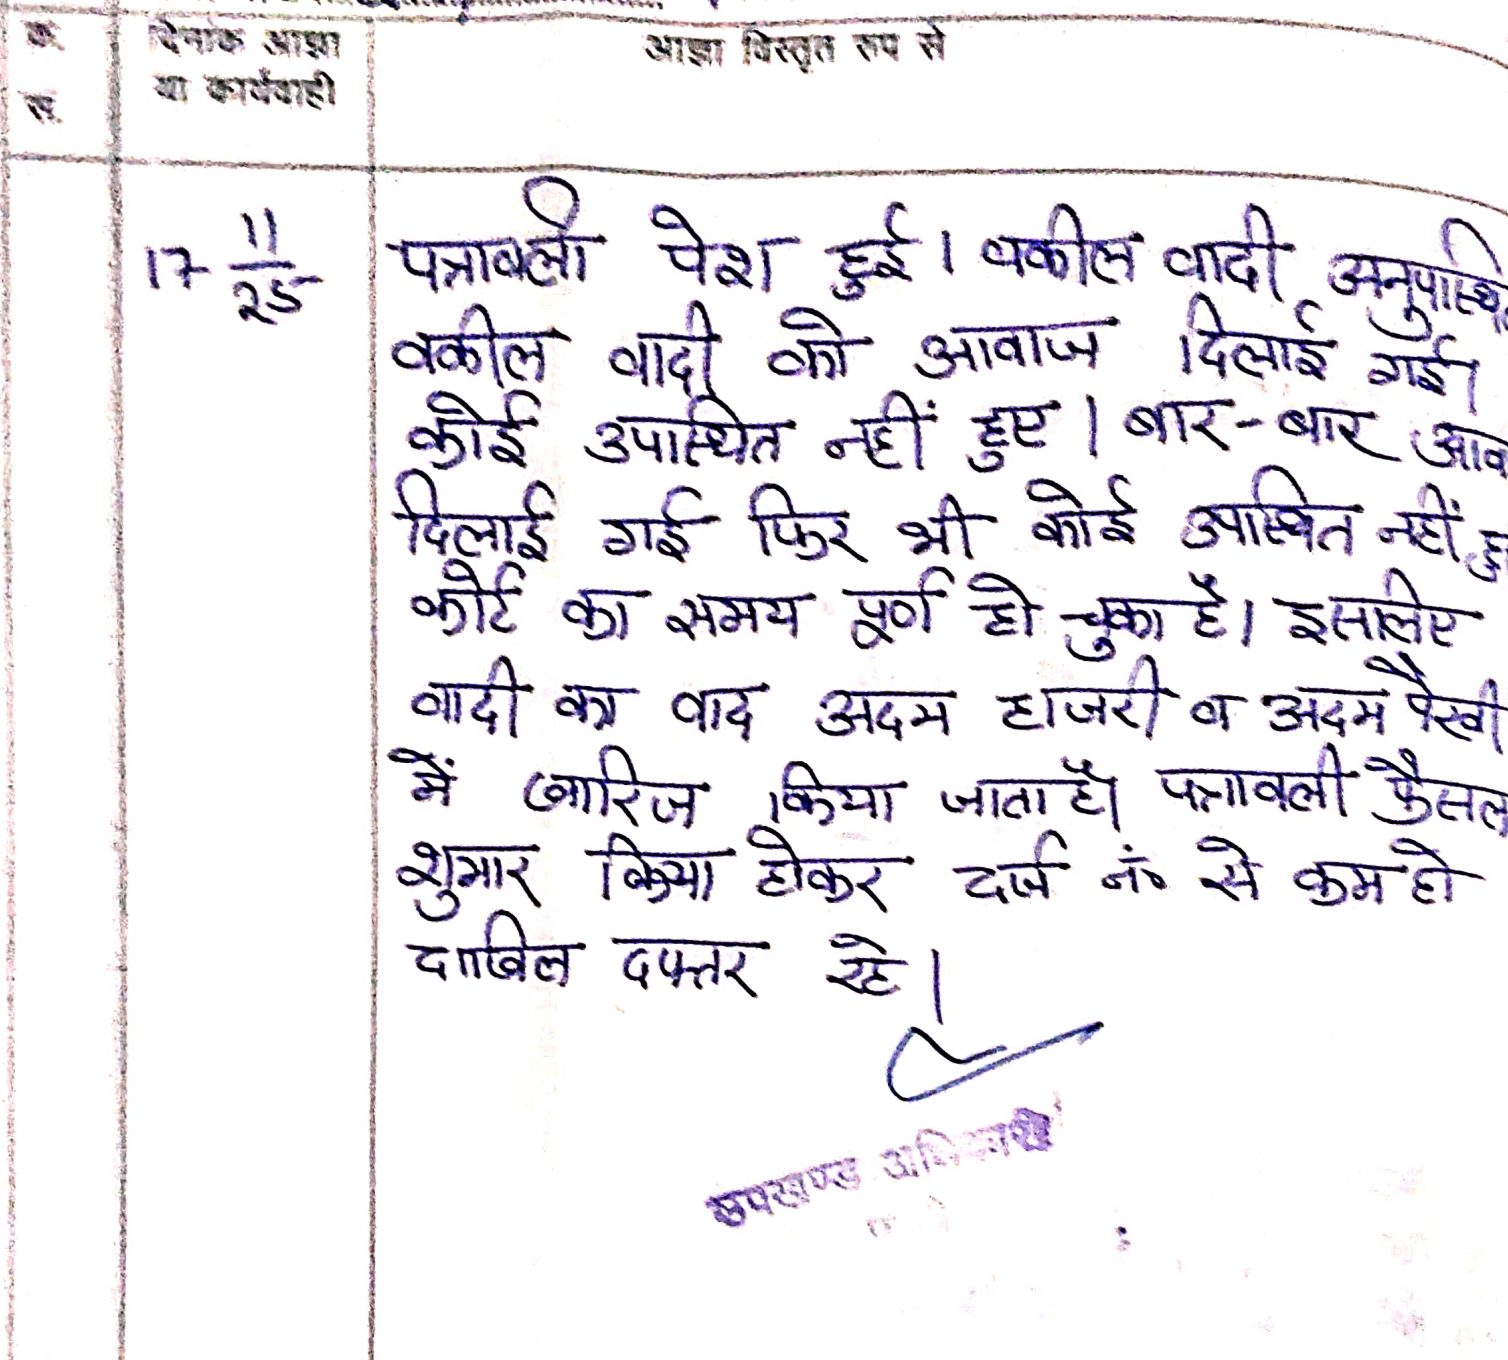 क्र. दिनांक आज्ञा आज्ञा विस्तृत रुप से
स. या कार्यवाही
17 11/25 पत्रावली पेश हुई। वकील वादी अनुपस्थित
वकील वादी को आवाज दिलाई गई।
कोई उपस्थित नहीं हुए। बार-बार आव
दिलाई गई फिर भी कोई उपस्थित नहीं हु
कोर्ट का समय पूर्ण हो चुका है। इसलिए
वादी का वाद अदम हाजरी व अदम पैरवी
में खारिज किया जाता है। पत्रावली फैसल
शुमार किया होकर दर्ज नं० से कम हो
दाखिल दफ्तर रहे।
उपखण्ड अधिकारी